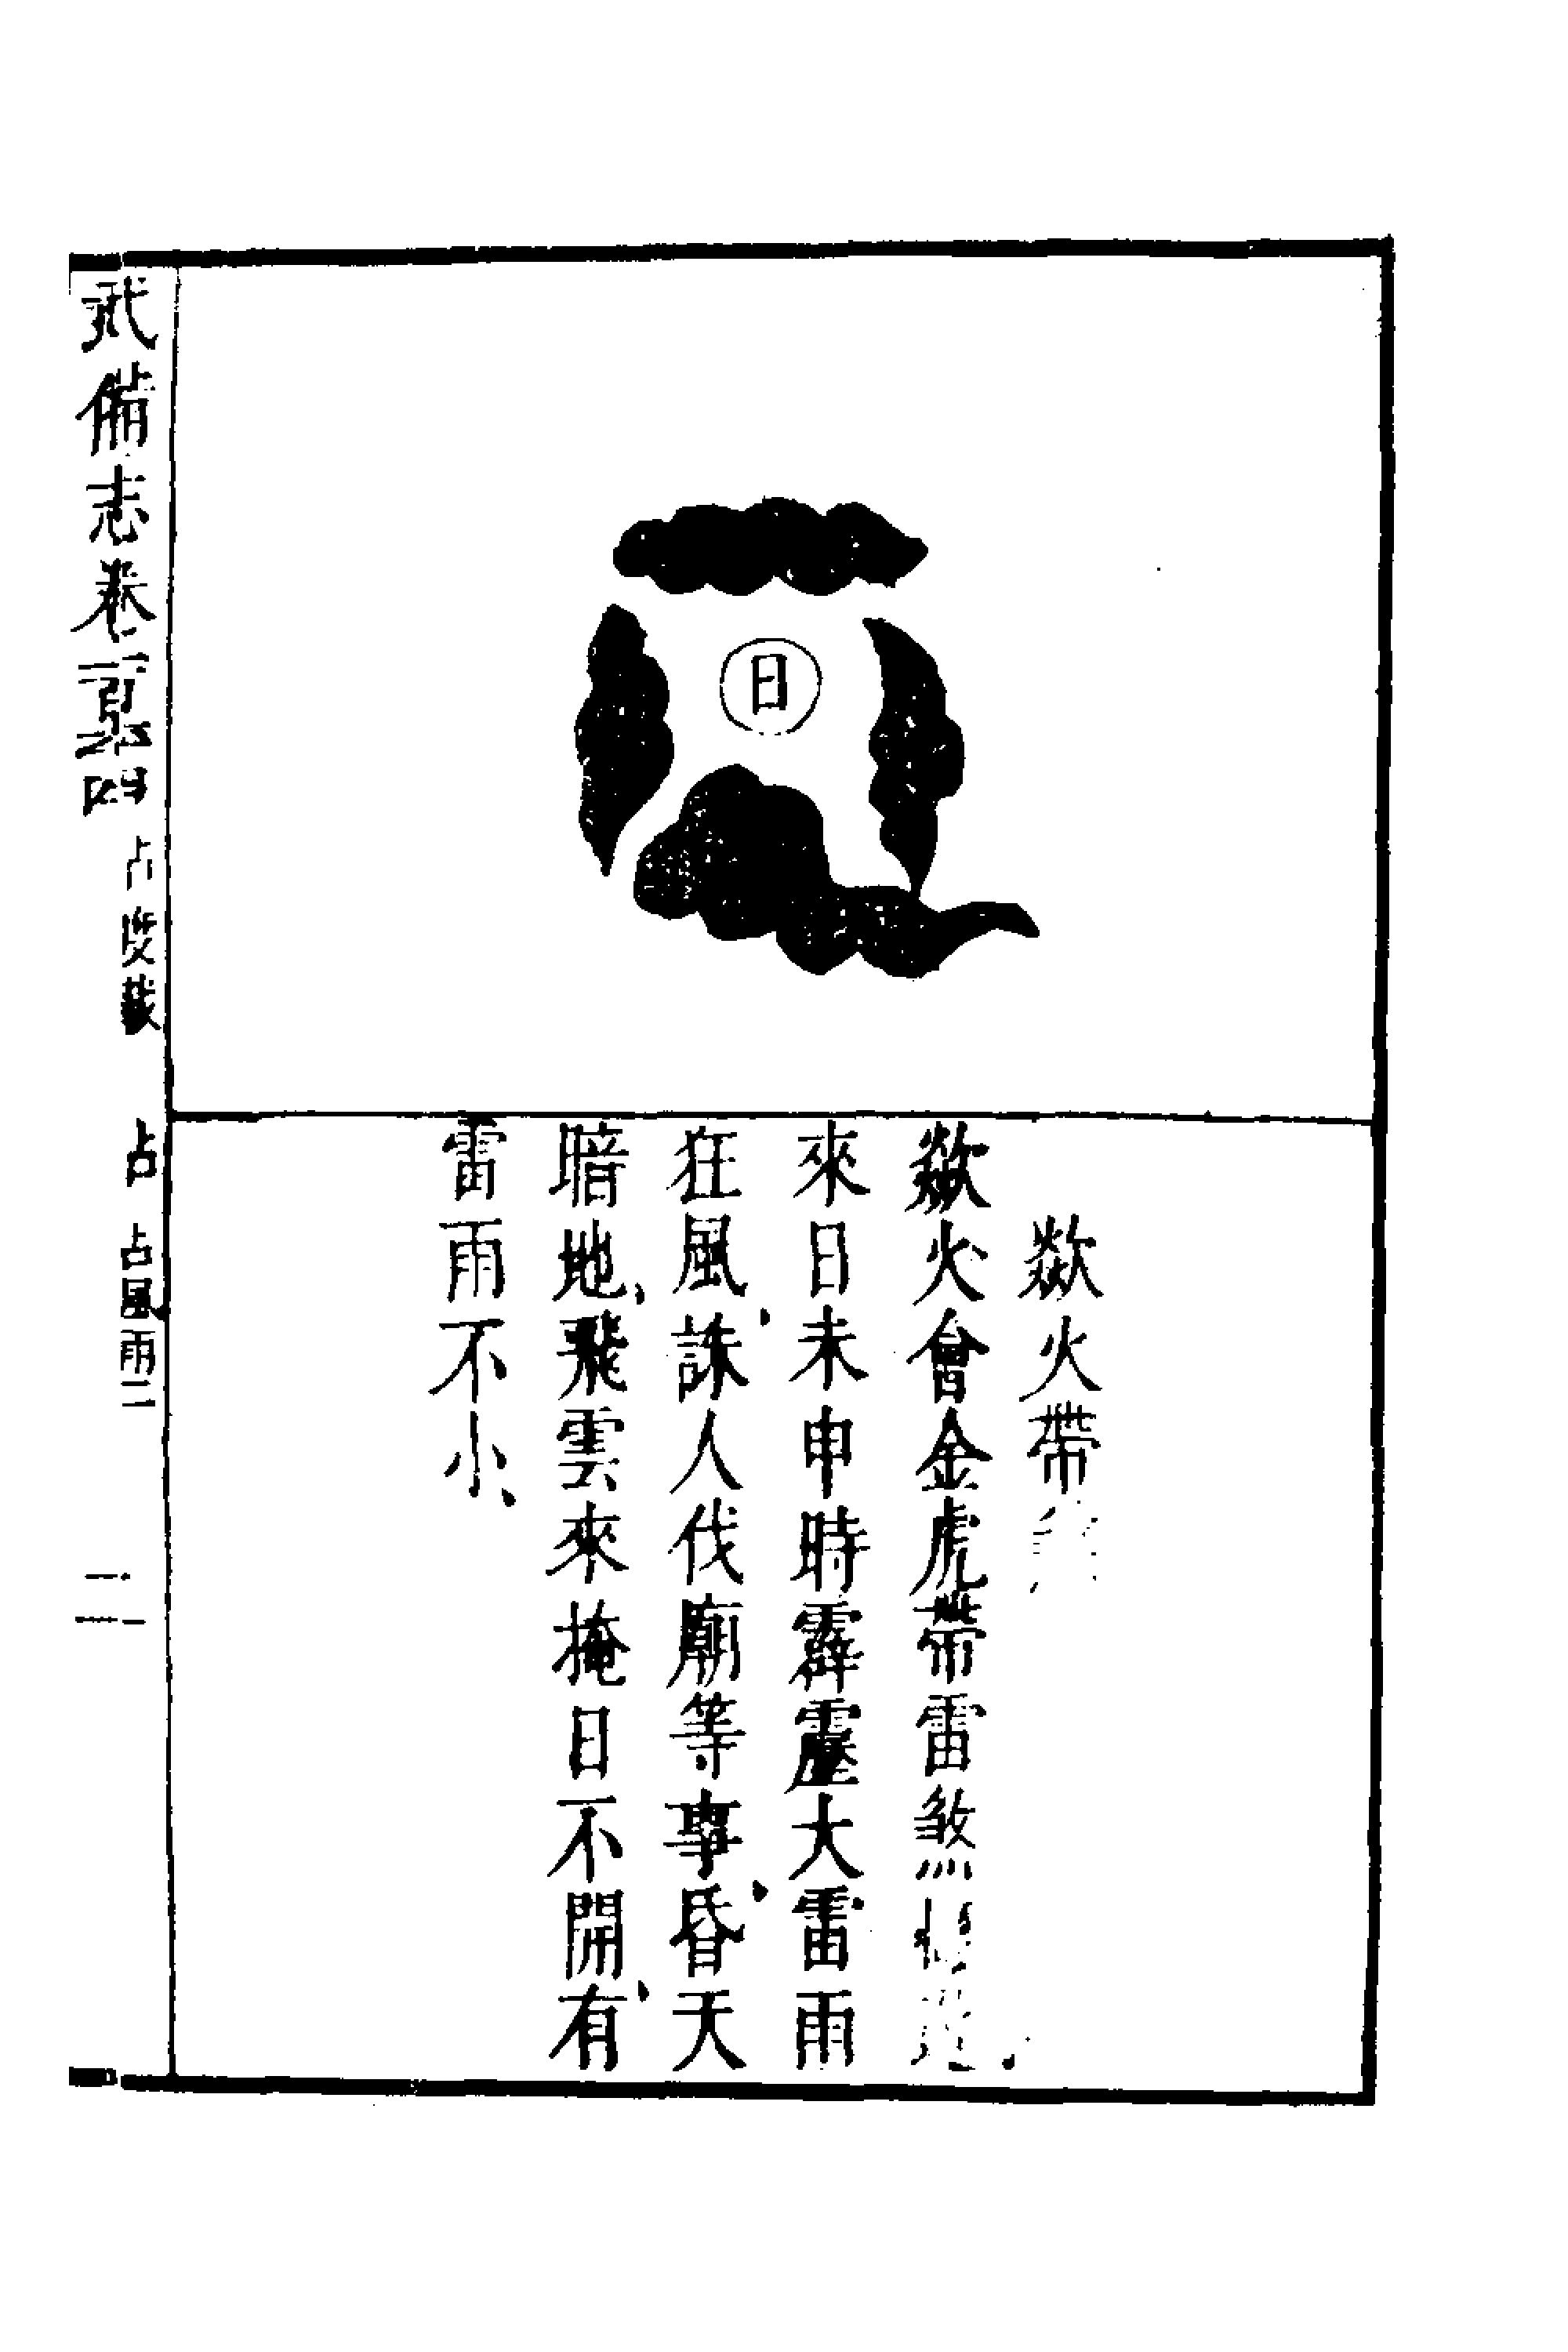 日
欻火帶
欻火會金虎帶雷煞
來日未申時霹靂大雷雨
狂風、誅人伐廟等事、昏天
暗地、飛雲來掩日不開、有
雷雨不小、
武備志卷一百五十四 占度載 占 占風雨二 二